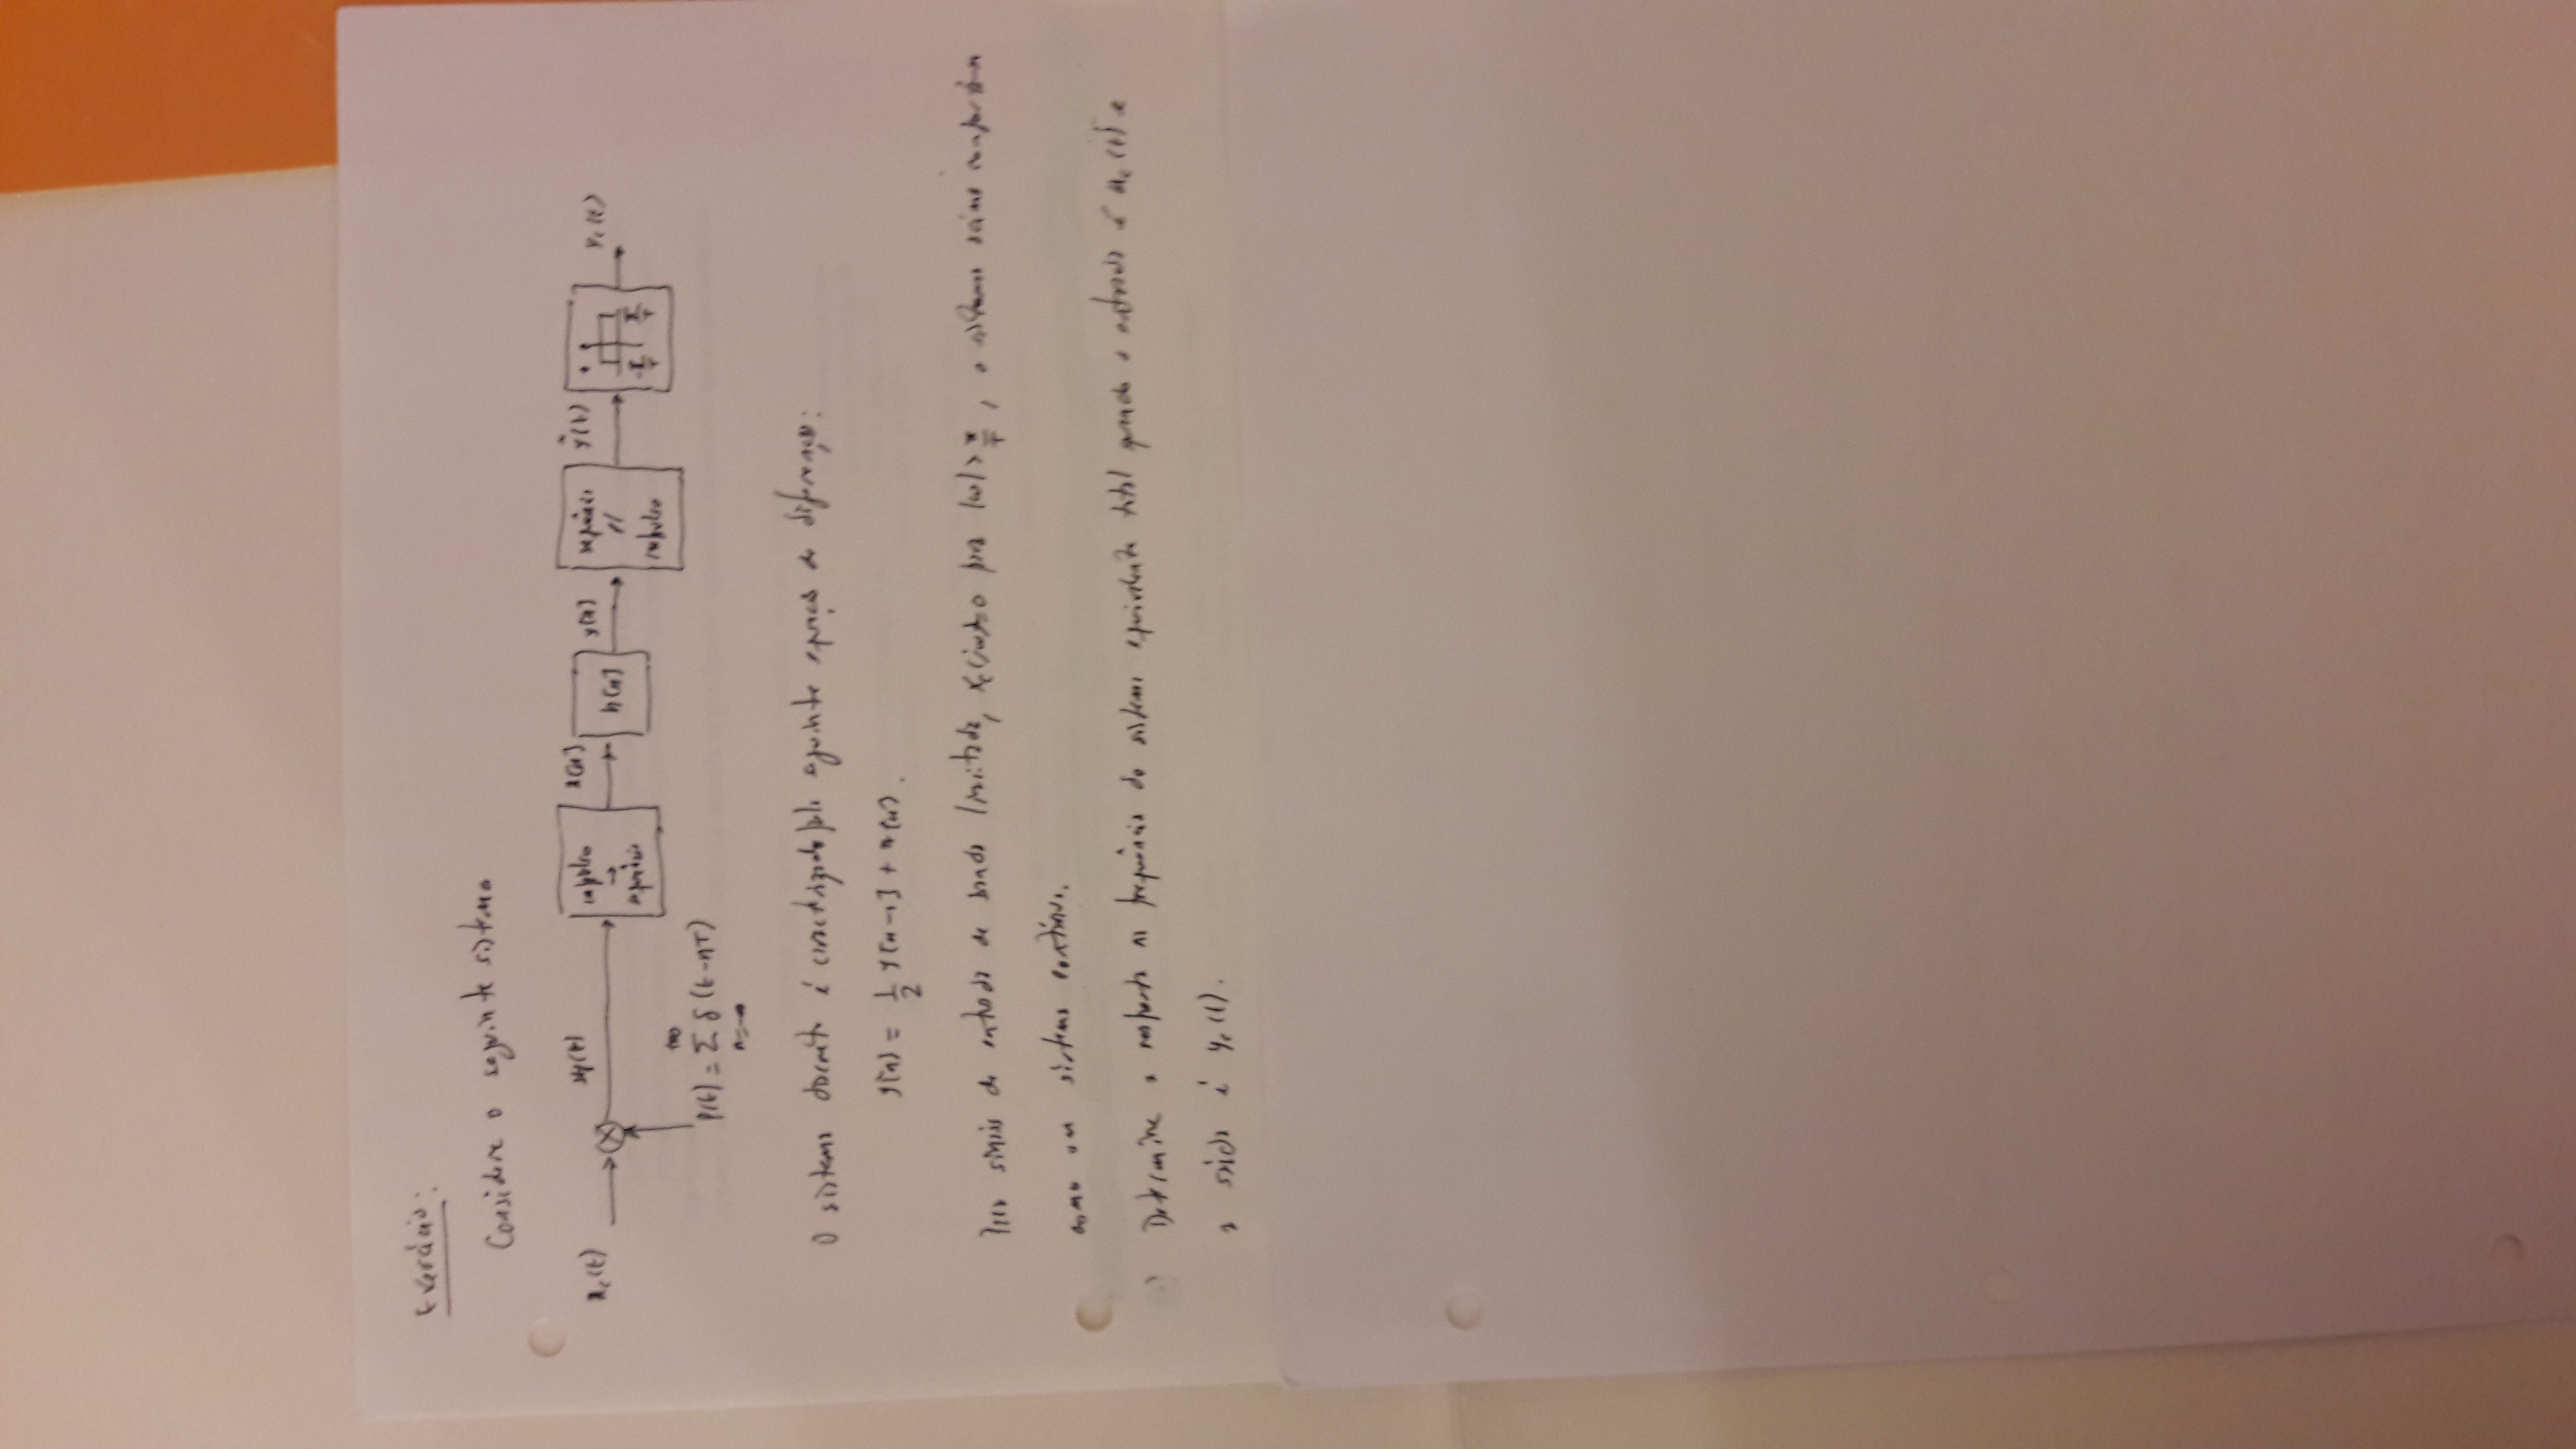 Exercício:
Considere o seguinte sistema
x_c(t) x_p(t) impulso → sequência x[n] h[n] y[n] sequência // impulso ỹ(t) -π/T π/T y_c(t)
p(t) = ∑_{n=-∞}^{+∞} δ(t-nT)
O sistema discreto é caracterizado pela seguinte equação de diferenças:
y[n] = 1/2 y[n-1] + x[n].
Para sinais de entrada de banda limitada, X_c(jω)=0 para |ω| > π/T, o sistema acima comporta-se
como um sistema contínuo.
Determine a resposta na frequência do sistema equivalente total quando a entrada é x_c(t) e
a saída é y_c(t).